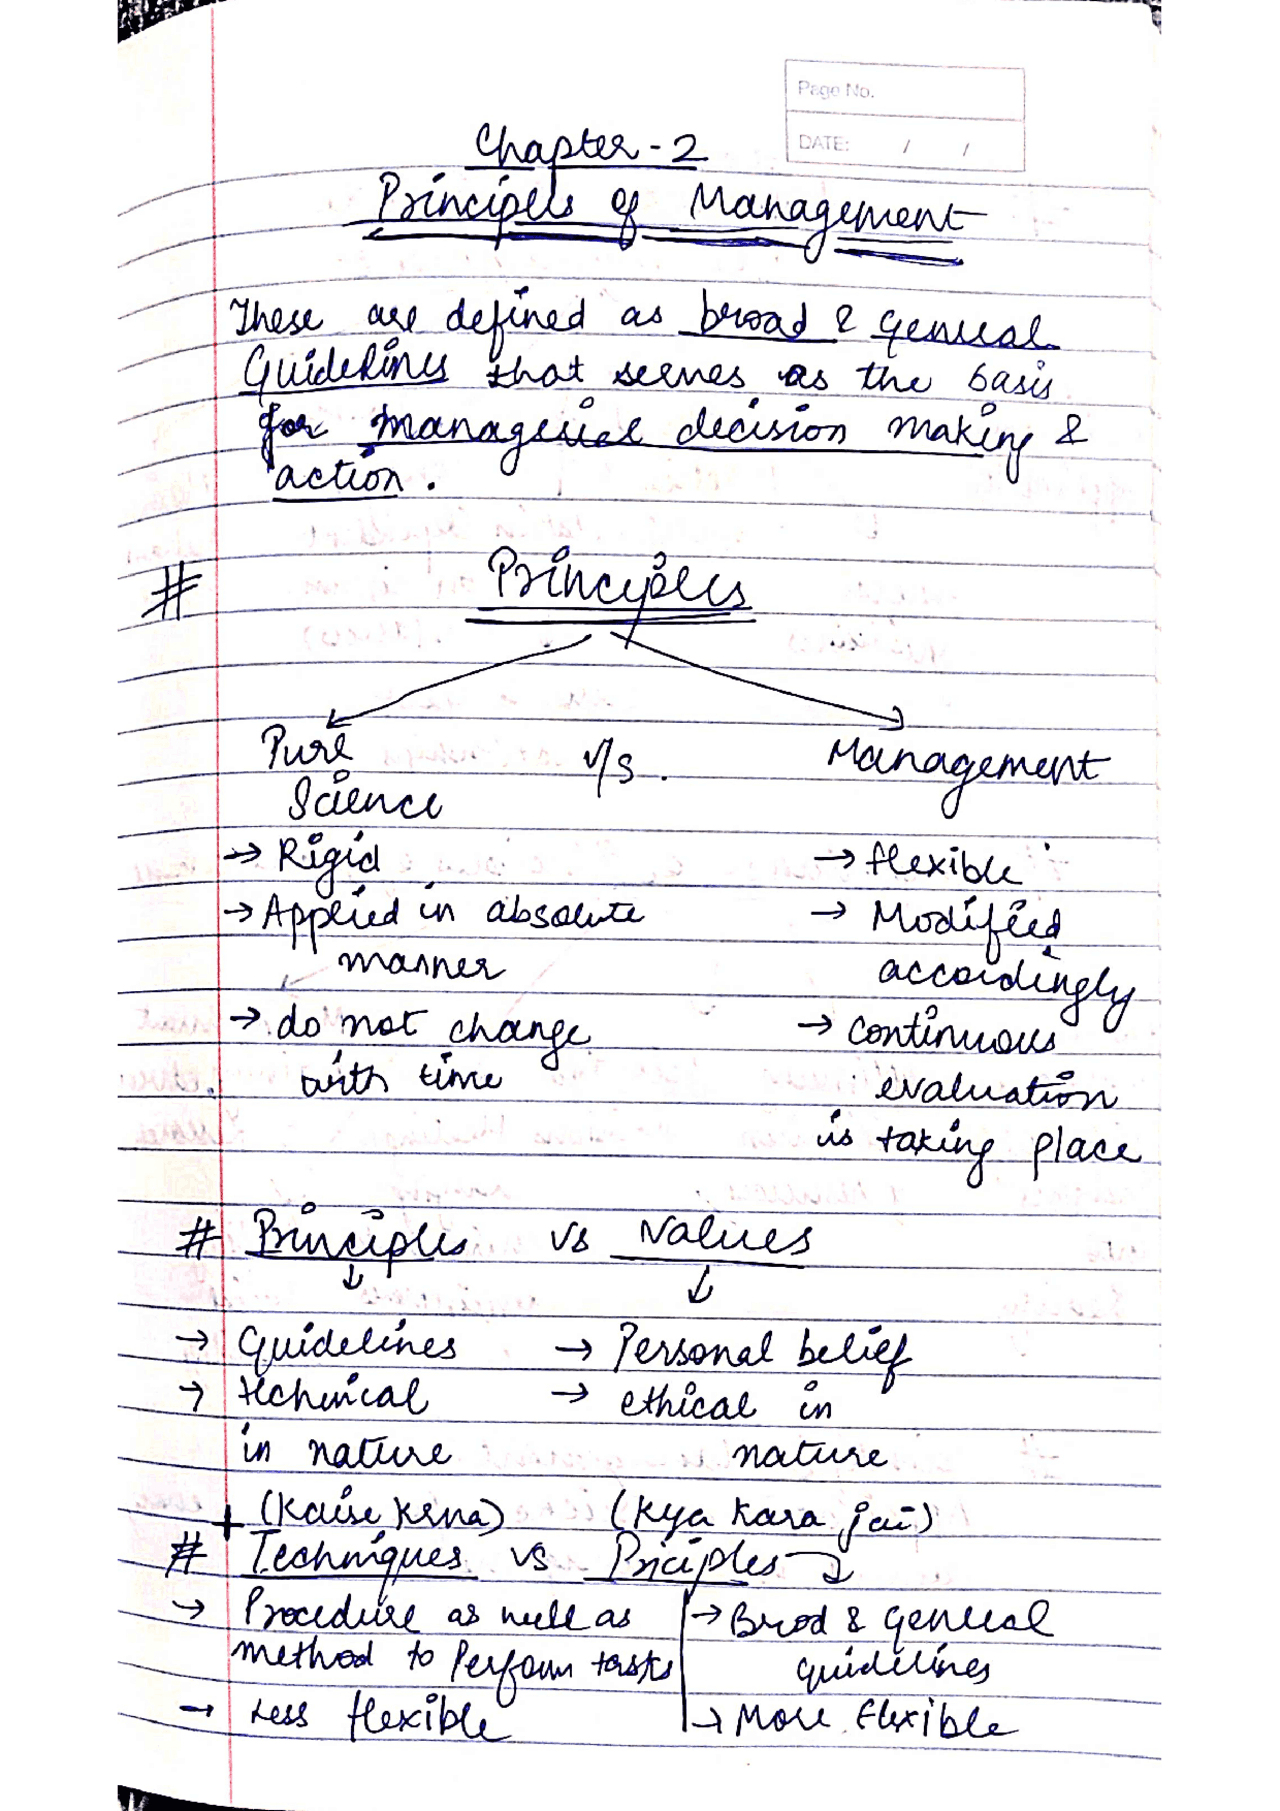 Page No.
DATE: / /
Chapter-2
Principles of Management
These are defined as broad & general
Guidelines that serves as the basis
for managerial decision making &
action.
# Principles
Pure v/s. Management
Science
→ Rigid → flexible
→ Applied in absolute → Modified
manner accordingly
→ do not change → continuous
with time evaluation
is taking place
# Principles vs Values
→ Guidelines → Personal belief
→ technical → ethical in
in nature nature
(Kaise Krna) (Kya Kara jai)
# Techniques vs Priciples
→ Procedure as well as → Brod & general
method to Perform tasks guidelines
→ Less flexible → More flexible